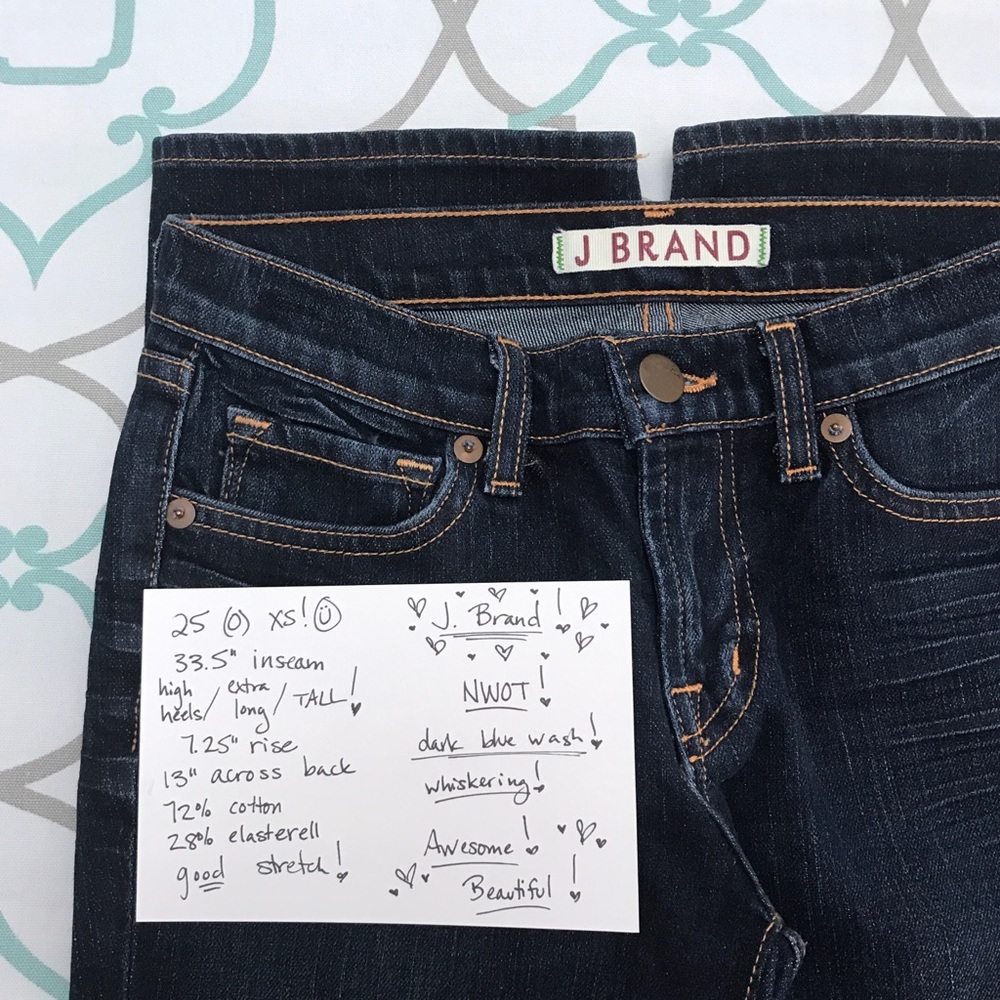 J BRAND
25 (0) XS!
33.5" inseam
high heels/ extra long/ TALL!
7.25" rise
13" across back
72% cotton
28% elasterell
good stretch!
J. Brand!
NWOT!
dark blue wash!
whiskering!
Awesome!
Beautiful!